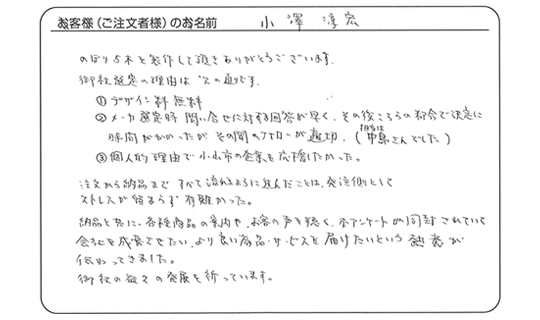 お客様（ご注文者様）のお名前　小澤 淳宏
のぼり5本を製作して頂きありがとうございます。
御社選定の理由は次の通りです。
①デザイン料無料
②メーカ選定時 問い合せに対する回答が早く、その後こちらの都合で決定に
時間がかかったが その間のフォローが適切。（担当は中島さんでした）
③個人的理由で小山市の企業を応援したかった。
注文から納品まで すべて流れるように進んだことは、発注側として
ストレスが留まらず有難かった。
納品と共に、各種商品の案内や、お客の声を聴く、本アンケートが同封されていて
会社を成長させたい、より良い商品・サービスを届けたいという熱意が
伝わってきました。
御社の益々の発展を祈っています。